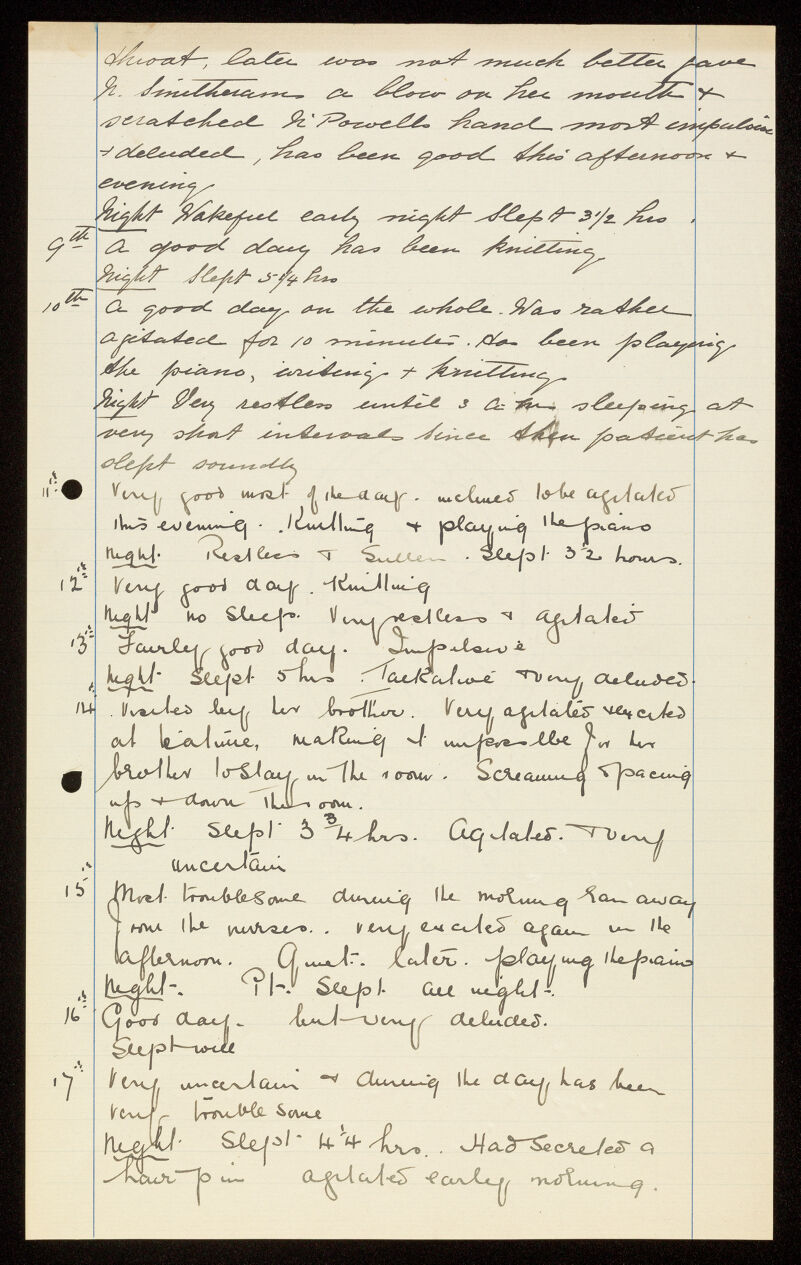 throat, later was not much better gave
N. Smetherams a blow on her mouth +
scratched N. Powells hand most impulsive
+ deluded, has been good this afternoon +
evening
Night Wakeful early night Slept 3 1/2 hrs.
9th A good day has been knitting
Night Slept 5 1/4 hrs
10th A good day on the whole. Was rather
agitated for 10 minutes. Has been playing
the piano, writing + knitting
Night Very restless until 3 a.m. sleeping at
very short intervals Since then patient has
slept soundly
11th Very good most of the day. inclined to be agitated
this evening. Knitting + playing the piano
Night. Restless + Sullen. Slept 3 1/2 hours.
12th Very good day. Knitting
Night no Sleep. Very restless + agitated
13th Fairly good day. Impulsive
Night Slept 5 hrs. Talkative + very deluded.
14th Visited by her brother. Very agitated + excited
at making it impossible for her
brother to stay in the room. Screaming + pacing
up + down the room.
Night Slept 3 3/4 hrs. Agitated. + very
uncertain
15th Most troublesome during the morning ran away
from the nurses.. very excited again in the
afternoon. Quiet. later. playing the piano
Night. Pt. Slept all night.
16th Good day. but very deluded.
Slept well
17th Very uncertain + during the day has been
very troublesome
Night Slept 4 1/4 hrs.. Had Secreted a
hair pin agitated early morning.